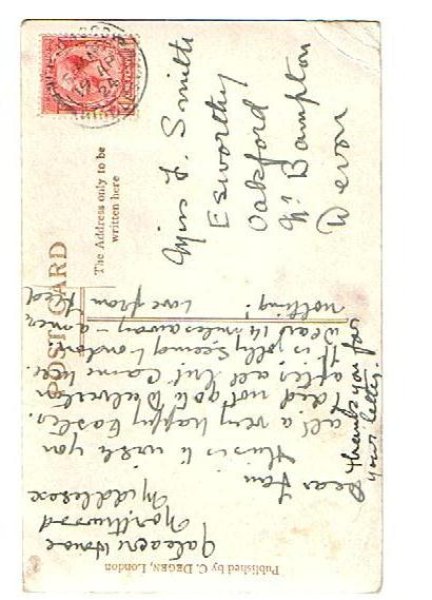 POST CARD
The Address only to be
written here
19 AP
24
Miss F. Smith
Esworthy
Oakford
Nr Bampton
Devon
House
Northwood
Middlesex
Dear Fan
this is to wish you
all a very happy Easter.
I did not go to Dulverton
after all but came here.
It is jolly seeing London
14 miles away – a mere
nothing! Love from
Thank you for
your letter.
Published by C. DEGEN, London